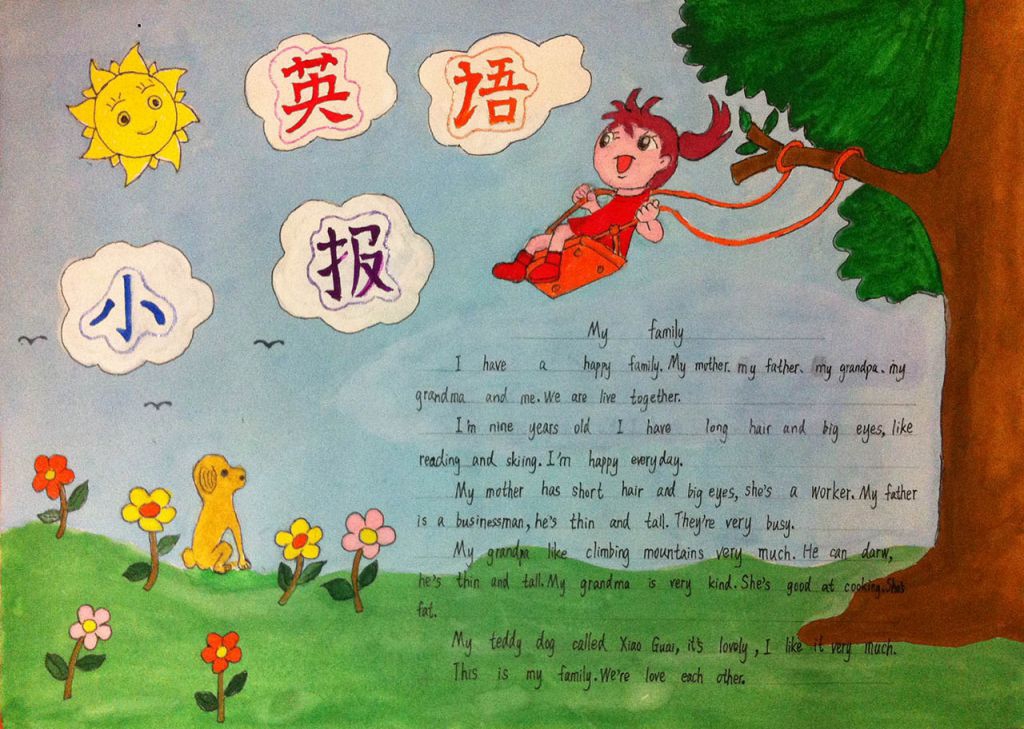 英语
小报
My family
I have a happy family. My mother. my father. my grandpa. my
grandma and me. We are live together.
I'm nine years old I have long hair and big eyes, like
reading and skiing. I'm happy everyday.
My mother has short hair and big eyes, she's a worker. My father
is a businessman, he's thin and tall. They're very busy.
My grandpa like climbing mountains very much. He can darw,
he's thin and tall. My grandma is very kind. She's good at cooking. She's
fat.
My teddy dog called Xiao Guai, it's lovely, I like it very much.
This is my family. We're love each other.